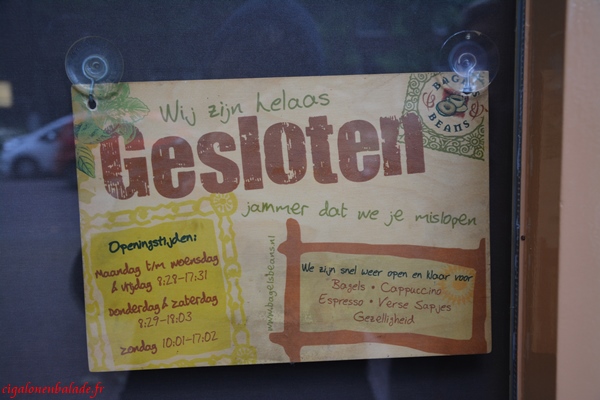 Wij zijn helaas
Gesloten
jammer dat we je mislopen
BAGELS
BEANS
Openingstijden:
Maandag t/m woensdag
& vrijdag 8:28-17:31
Donderdag & zaterdag
8:29-18:03
zondag 10:01-17:02
www.bagelsbeans.nl
We zijn snel weer open en klaar voor
Bagels • Cappuccino
Espresso • Verse Sapjes
Gezelligheid
cigalonenbalade.fr